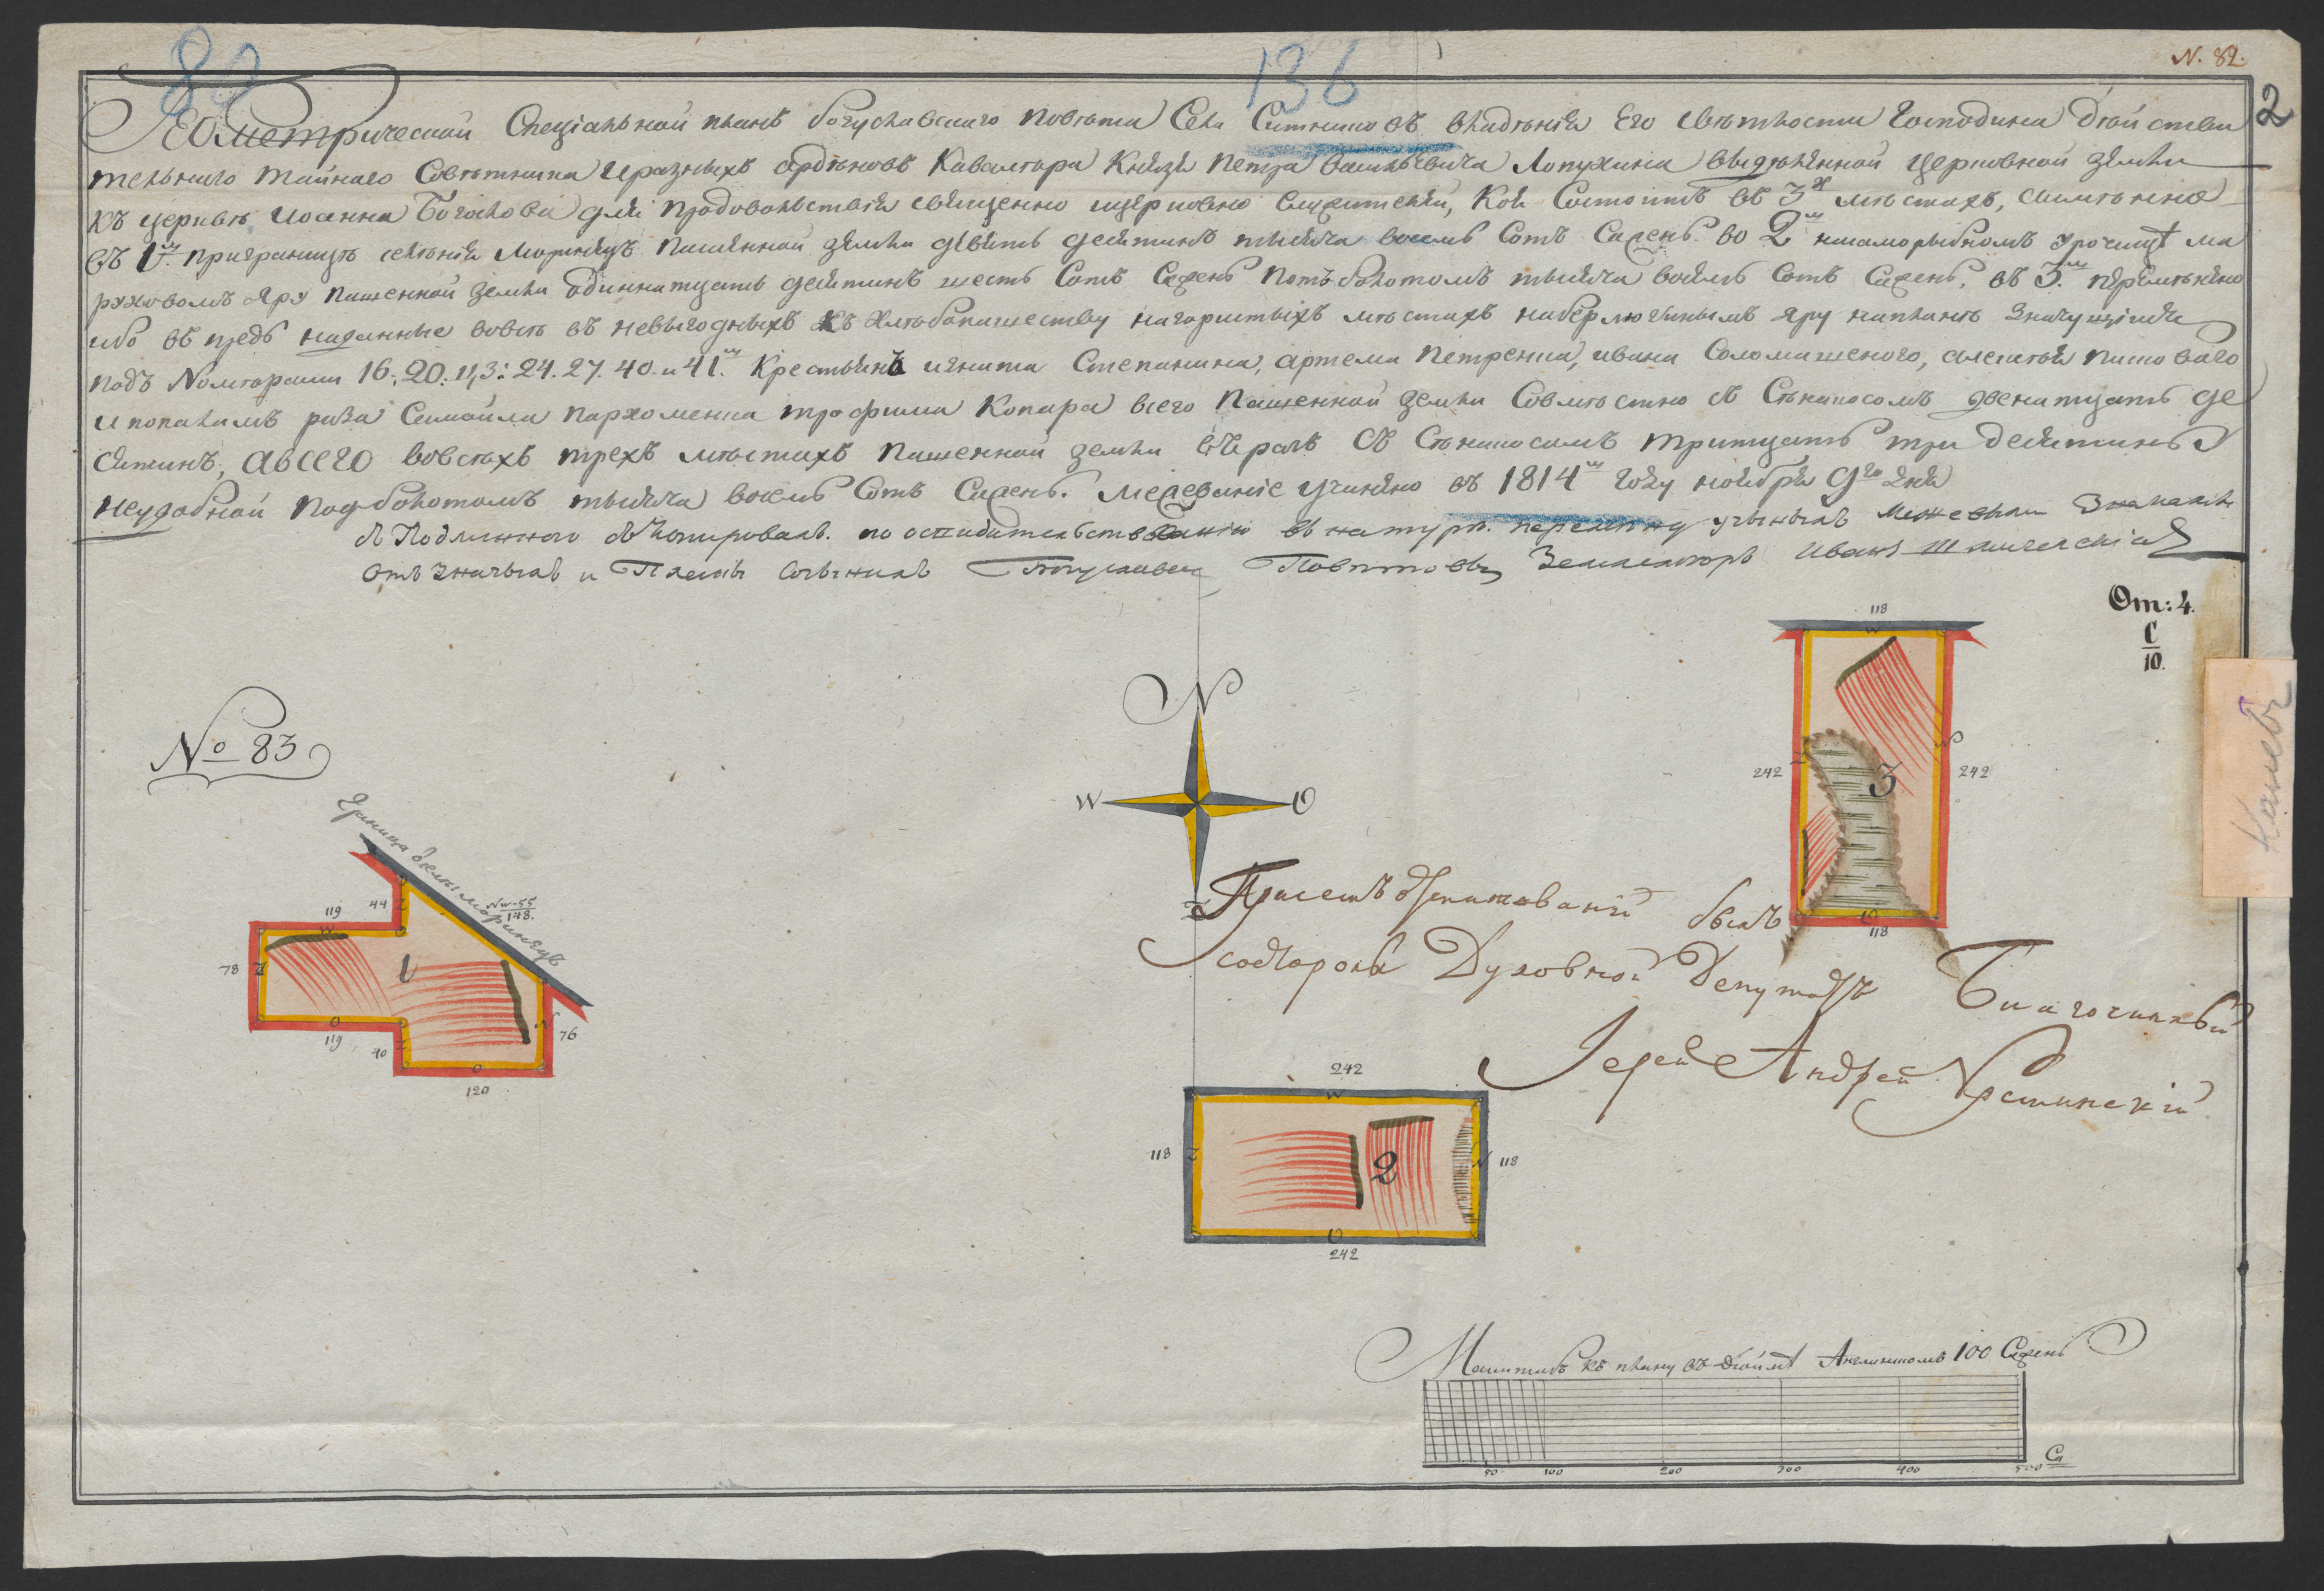 N. 82.
82
136
2
Геометрической Специальной планъ богуславского повѣта Села Ситниковъ владѣнія Его Свѣтлости Господина Дѣйстви
тельнаго тайнаго Совѣтника и разныхъ ордѣновъ Кавалѣра Князя Петра васильевича Лопухина выдѣленной церковной земли
къ церквѣ иоанна Богослова для продовольствія священно и церковно служителей, Кои Состоитъ въ 3х мѣстахъ, имѣнно
въ 1м приграницѣ селѣнія Моринецъ пашенной земли девять десятинъ тысяча восемь Сотъ Сажень во 2м урочищѣ ма
руховомъ Яру пашенной земли одиннатцать десятинъ шесть Сотъ Сажень потъ болотомъ тысяча восемь Сотъ Сажень, въ 3м перемѣнено
ибо въ предъ наданные вовсѣ въ невыгодныхъ къ хлѣбопашеству нагористыхъ мѣстахъ яру напланѣ значущіися
подъ Номѣрами 16: 20: 24. 27. 40. и 41. Крестьянъ игната Степанина, артема Петренка, ивана
Самойла пархоменка трофима Копара всего Пашенной земли Совмѣстно съ Сѣнокосомъ двенатцать де
сятинъ, А всего вовсѣхъ трехъ мѣстахъ пашенной земли въ разъ Съ Сѣнокосомъ тритцать три десятины
неудобной подъ болотомъ тысяча восемь Сотъ Сажень. Межеваніе учинено въ 1814м году ноября 9го дня
Съ Подлинного Копировалъ. по освидительствованію въ натурѣ перемену учинилъ Межевыи Знаками
отъзначилъ и Планъ Сочинилъ Богуславскій Повитовый Землемѣръ Иванъ
От: 4.
С
10.
№ 83
Граница земли моринецъ
NW-55
148.
44
119
W
78
1
N
76
119
40
120
N
W
O
118
242
242
3
118
Канев
При семъ былъ
состороны Духовной Депутатъ Благочинный
Іерей Андрей
242
W
118
2
N
118
O
242
Маштабъ къ плану въ дюймѣ Англинскомъ 100 Сажень
50
100
200
300
400
500
Са